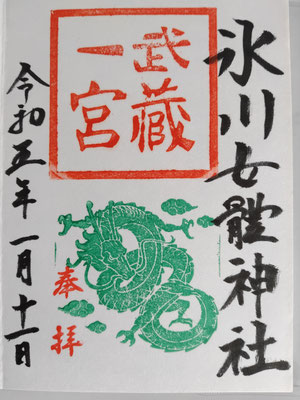 氷川女體神社
武藏
一宮
奉拝
令和五年一月十一日